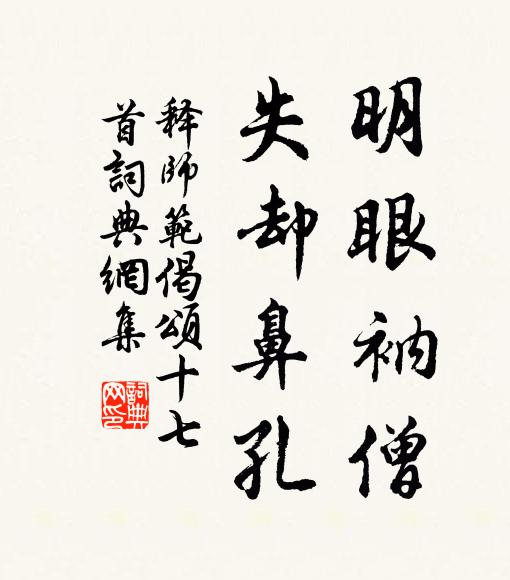 明眼衲僧
失却鼻孔
释師範偈頌十七
首詞典網集
詞典
网印